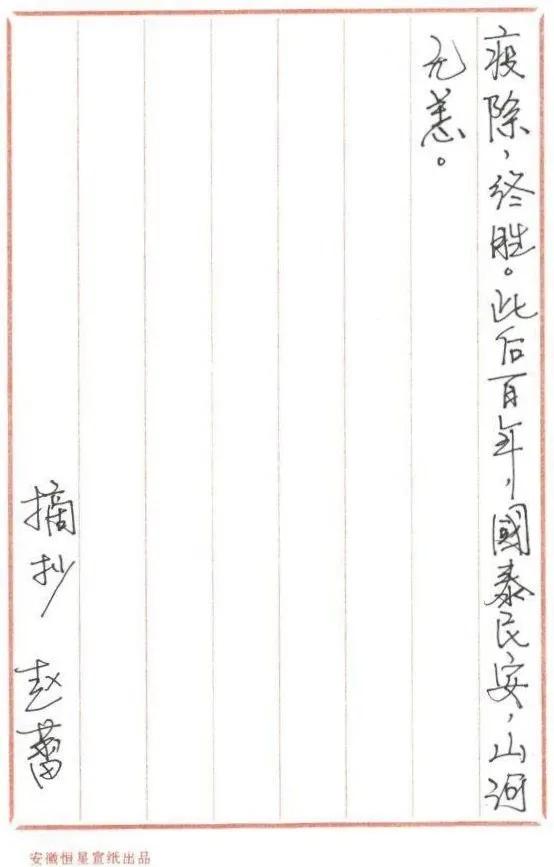 疫除，终胜。此后百年，國泰民安，山河
无恙。
摘抄 赵蕾
安徽恒星宣纸出品